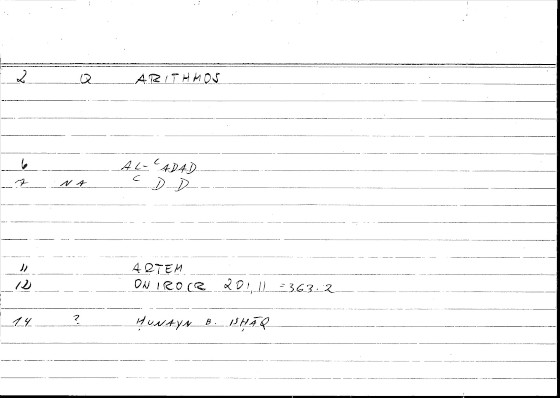 2 Q ARITHMOS
6 AL-ʿADAD
7 NA ʿ D D
11 ARTEM
12 ONIROCR 201,11 = 363.2
14 ? ḤUNAYN B. ISḤĀQ